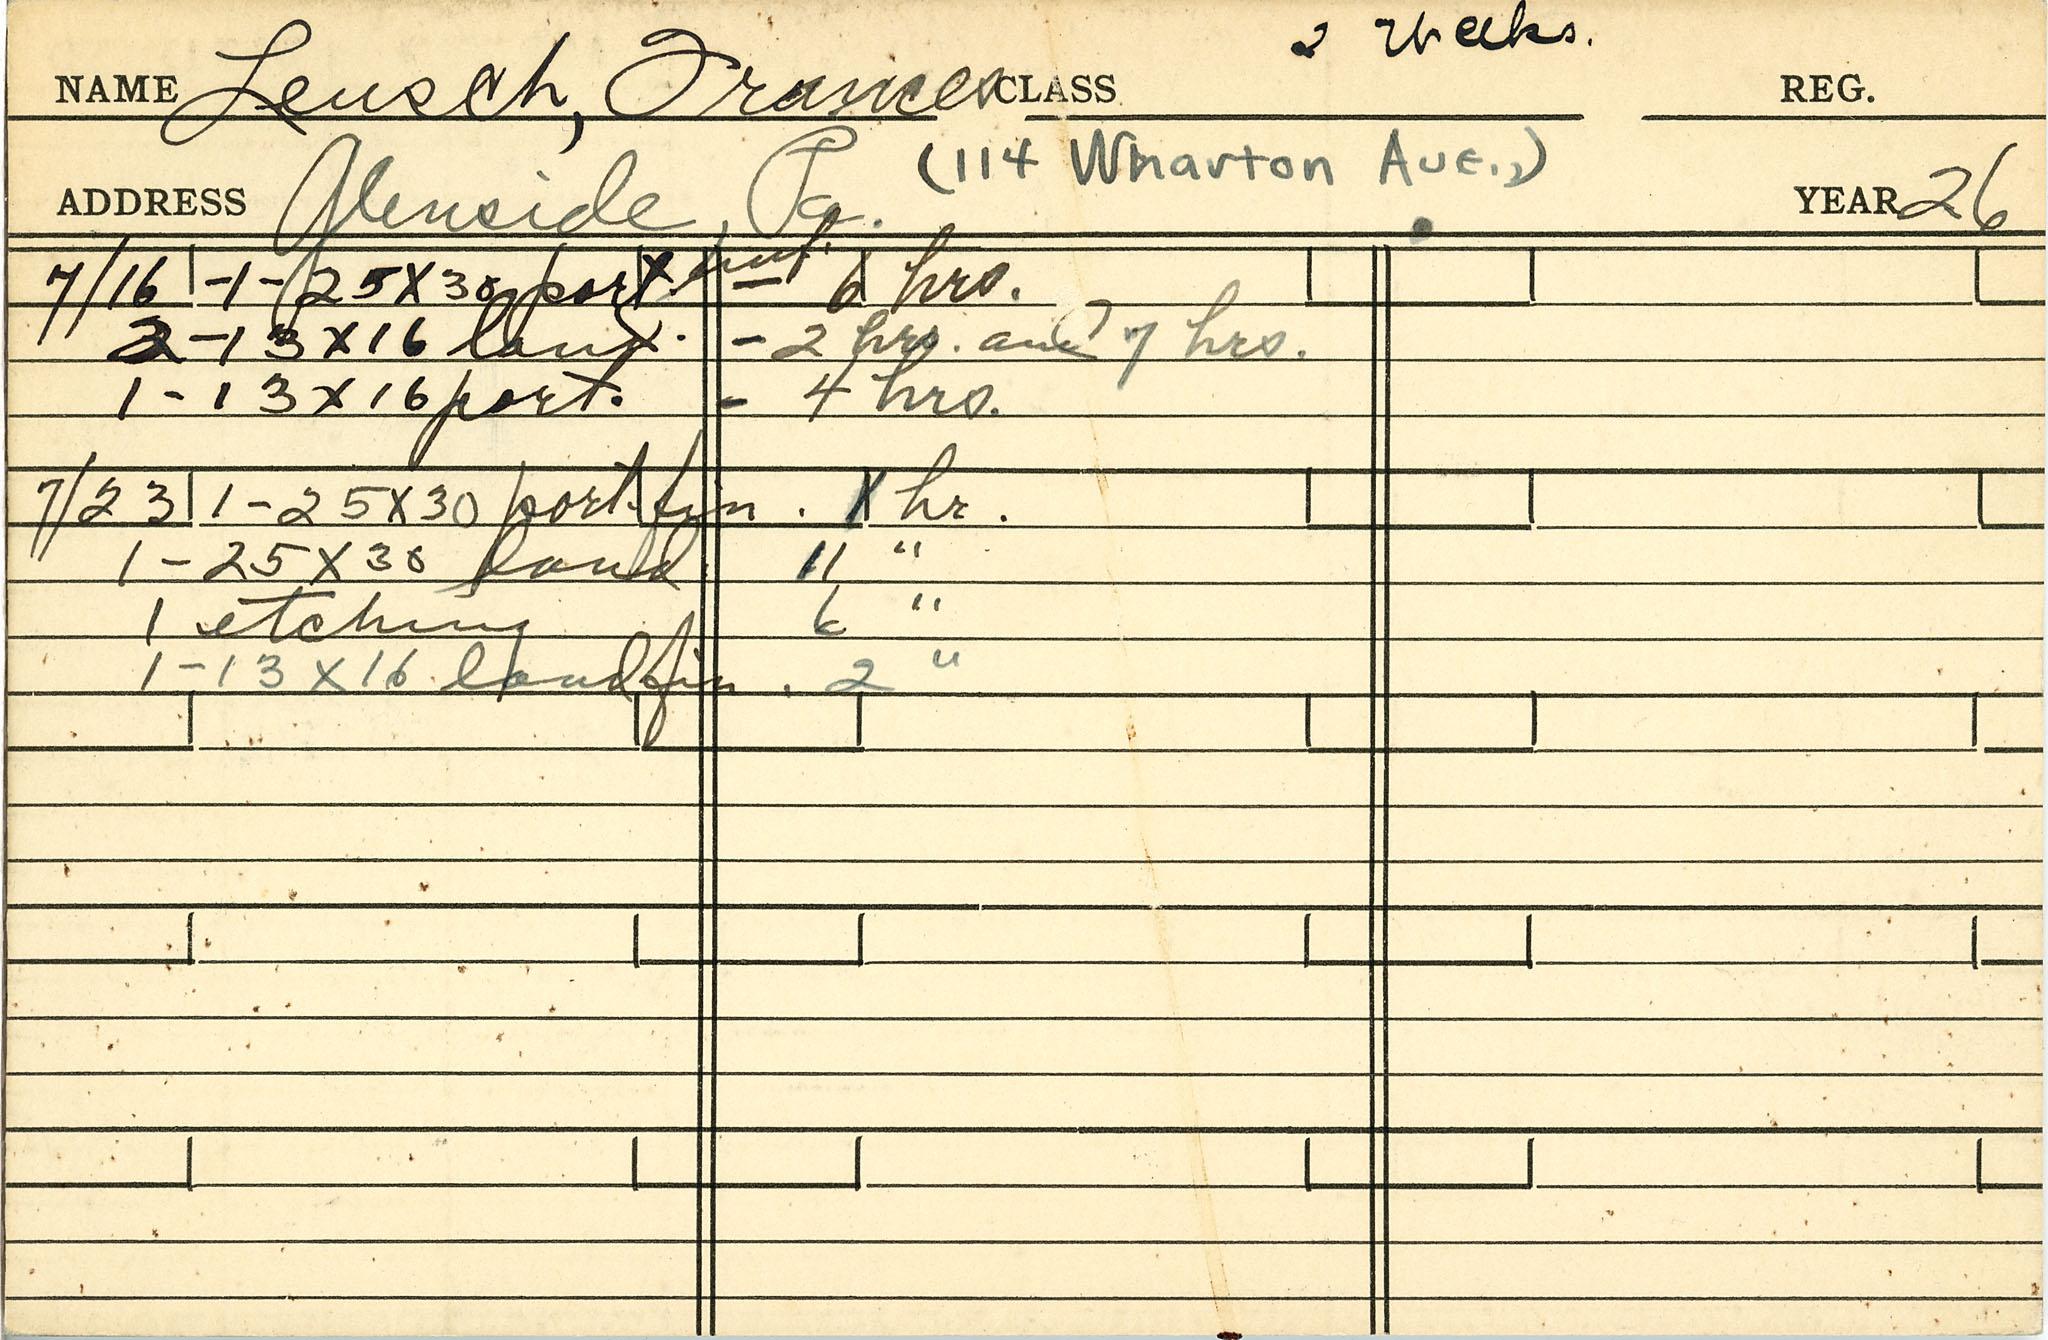 2 Weeks.
NAME Leusch, Frances CLASS REG.
ADDRESS Glenside, Pa. (114 Wharton Ave.,) YEAR 26
7/16 -1-25X30 port. - 6 hrs.
2-13X16 land. - 2 hrs. and 7 hrs.
1-13X16 port. - 4 hrs.
7/23 1-25X30 port. fin. 1 hr.
1-25X30 land. 11 "
1 etching 6 "
1-13X16 land fin. 2 "